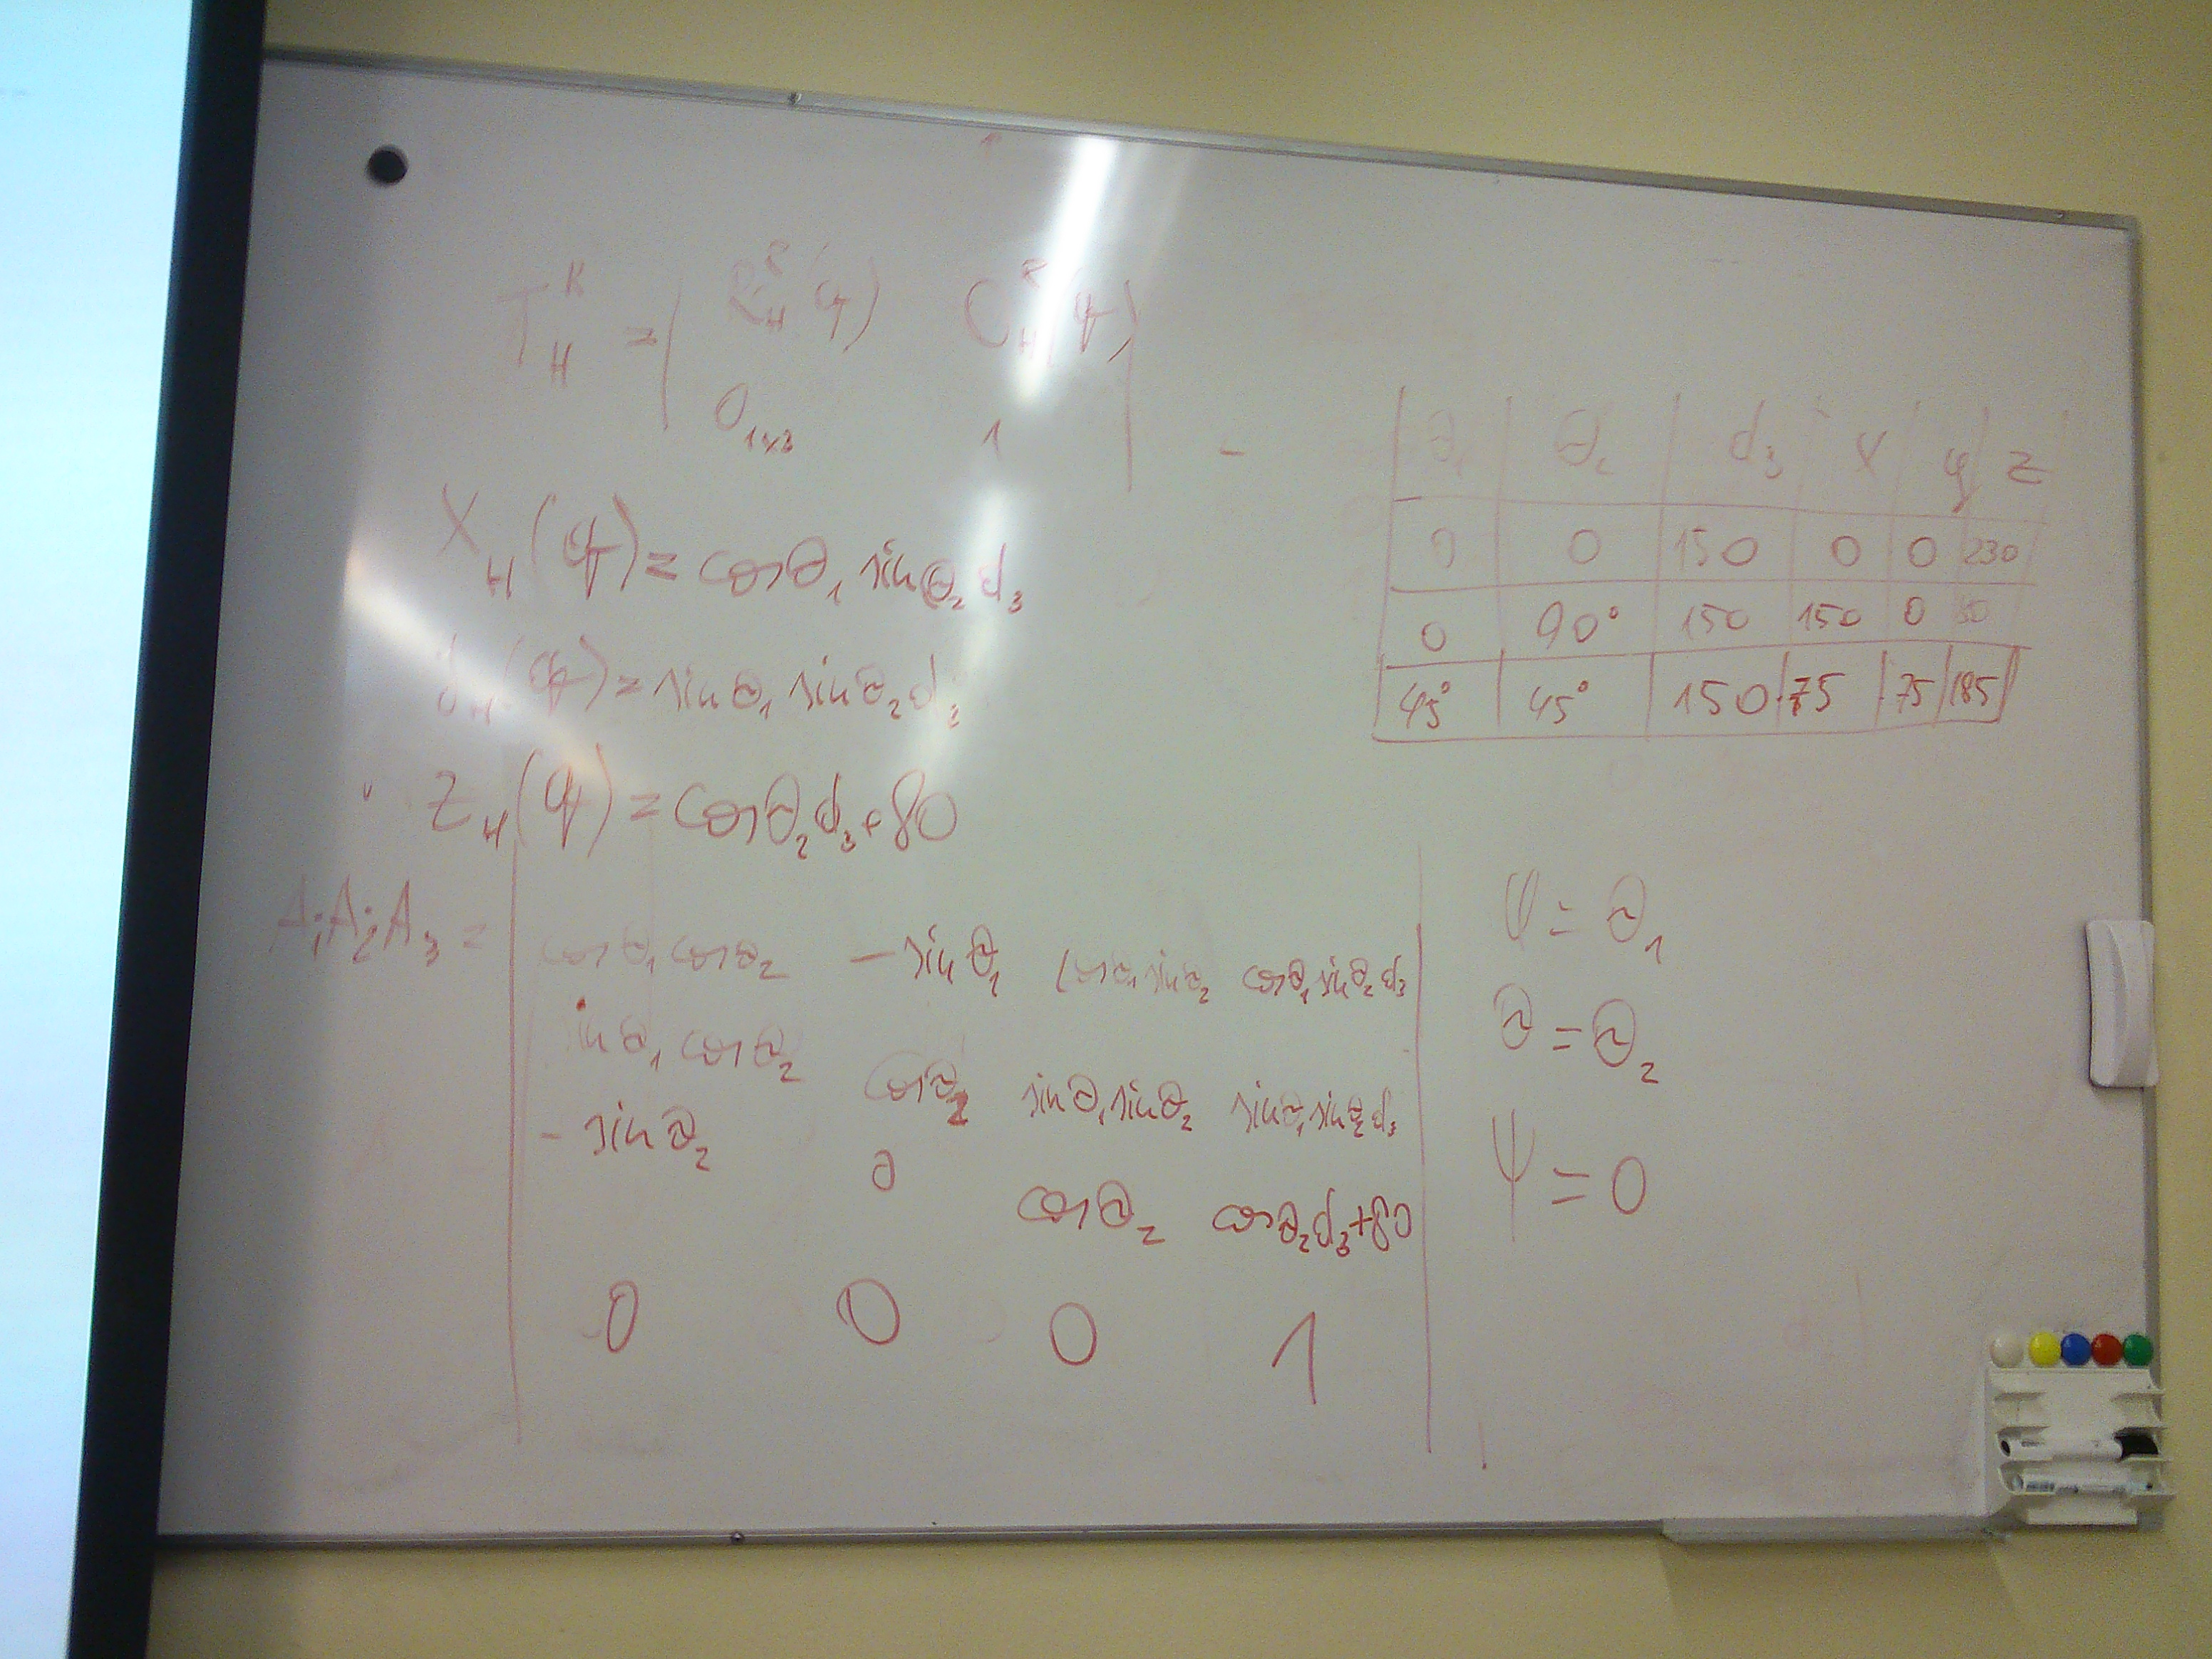 T_H^R = | R_H^R(q) O_H^R(q) |
0_{1x3} 1
X_H(q) = cosθ_1 sinθ_2 d_3
y_H(q) = sinθ_1 sinθ_2 d_3
Z_H(q) = cosθ_2 d_3 + 80
A_1 A_2 A_3 =
cosθ_1 cosθ_2 -sinθ_1 cosθ_1 sinθ_2 cosθ_1 sinθ_2 d_3
sinθ_1 cosθ_2 cosθ_2 sinθ_1 sinθ_2 sinθ_1 sinθ_2 d_3
-sinθ_2 0 cosθ_2 cosθ_2 d_3+80
0 0 0 1
θ_1 θ_2 d_3 X y z
0 0 150 0 0 230
0 90° 150 150 0 80
45° 45° 150 75 75 185
φ = θ_1
θ = θ_2
ψ = 0